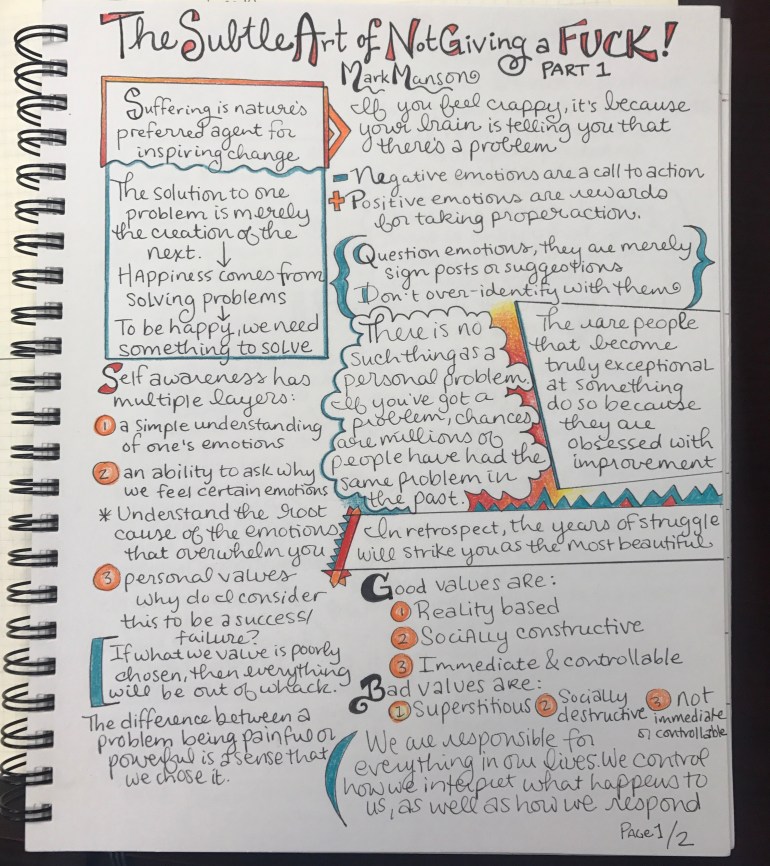 The Subtle Art of Not Giving a FUCK!
Mark Manson PART 1
Suffering is nature's
preferred agent for
inspiring change
The solution to one
problem is merely
the creation of the
next.
↓
Happiness comes from
solving problems
↓
To be happy, we need
something to solve
If you feel crappy, it's because
your brain is telling you that
there's a problem
- Negative emotions are a call to action
+ Positive emotions are rewards
for taking proper action.
Question emotions, they are merely
sign posts or suggestions
Don't over-identify with them
There is no
such thing as a
personal problem.
If you've got a
problem, chances
are millions of
people have had the
same problem in
the past.
The rare people
that become
truly exceptional
at something
do so because
they are
obsessed with
improvement
In retrospect, the years of struggle
will strike you as the most beautiful
Self awareness has
multiple layers:
1 a simple understanding
of one's emotions
2 an ability to ask why
we feel certain emotions
* Understand the root
cause of the emotions
that overwhelm you
3 personal values
why do I consider
this to be a success/
failure?
If what we value is poorly
chosen, then everything
will be out of whack.
The difference between a
problem being painful or
powerful is a sense that
we chose it.
Good values are:
1 Reality based
2 Socially constructive
3 Immediate & controllable
Bad values are:
1 Superstitious 2 Socially destructive 3 not immediate or controllable
We are responsible for
everything in our lives. We control
how we interpret what happens to
us, as well as how we respond
Page 1/2